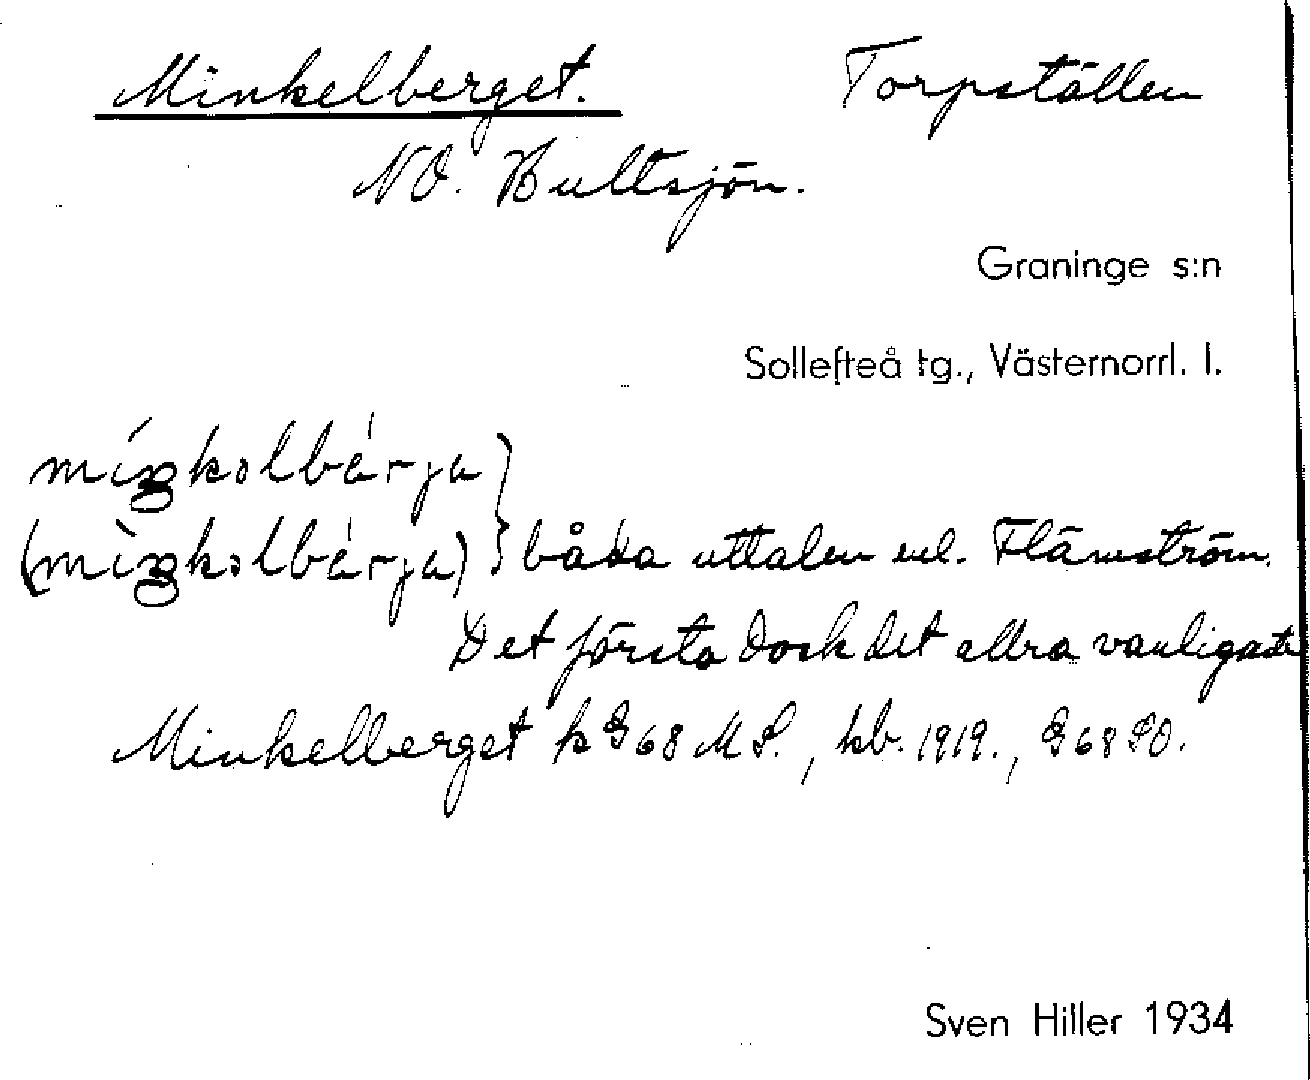 Minkelberget. Torpställen
NO. Bultsjön.
Graninge s:n
Sollefteå tg., Västernorrl. l.
míŋkəlbárja
(mìŋkəlbárja) } båda uttalen enl. Flämström.
Det första dock det allra vanligaste
Minkelberget k G68 MS., kb. 1919., G68 SO.
Sven Hiller 1934